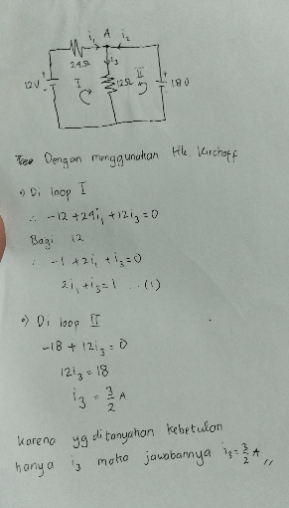 i₁ A i₂
24Ω i₃
12V I 12Ω II 18V
Dengan menggunakan Hk. Kirchoff
•) Di loop I
∴ -12 + 24i₁ + 12i₃ = 0
Bagi 12
∴ -1 + 2i₁ + i₃ = 0
2i₁ + i₃ = 1 ...(1)
•) Di loop II
-18 + 12i₃ = 0
12i₃ = 18
i₃ = 3/2 A
Karena yg ditanyakan kebetulan
hanya i₃ maka jawabannya i₃ = 3/2 A //